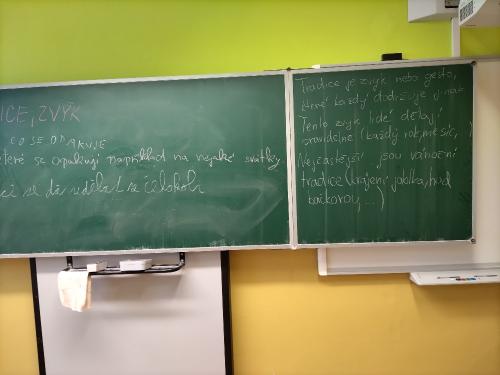 ICE, ZVYK
CO SE OPAKUJE
které se opakují například na nějaké svátky
se dá udělat
Tradice je zvyk nebo gesto,
které každý dodržuje jinak
Tento zvyk lidé dělají
pravidelně (každý rok, měsíc,
Nejčastější jsou vánoční
tradice (krájení jablka, hod
bačkorou, ...)